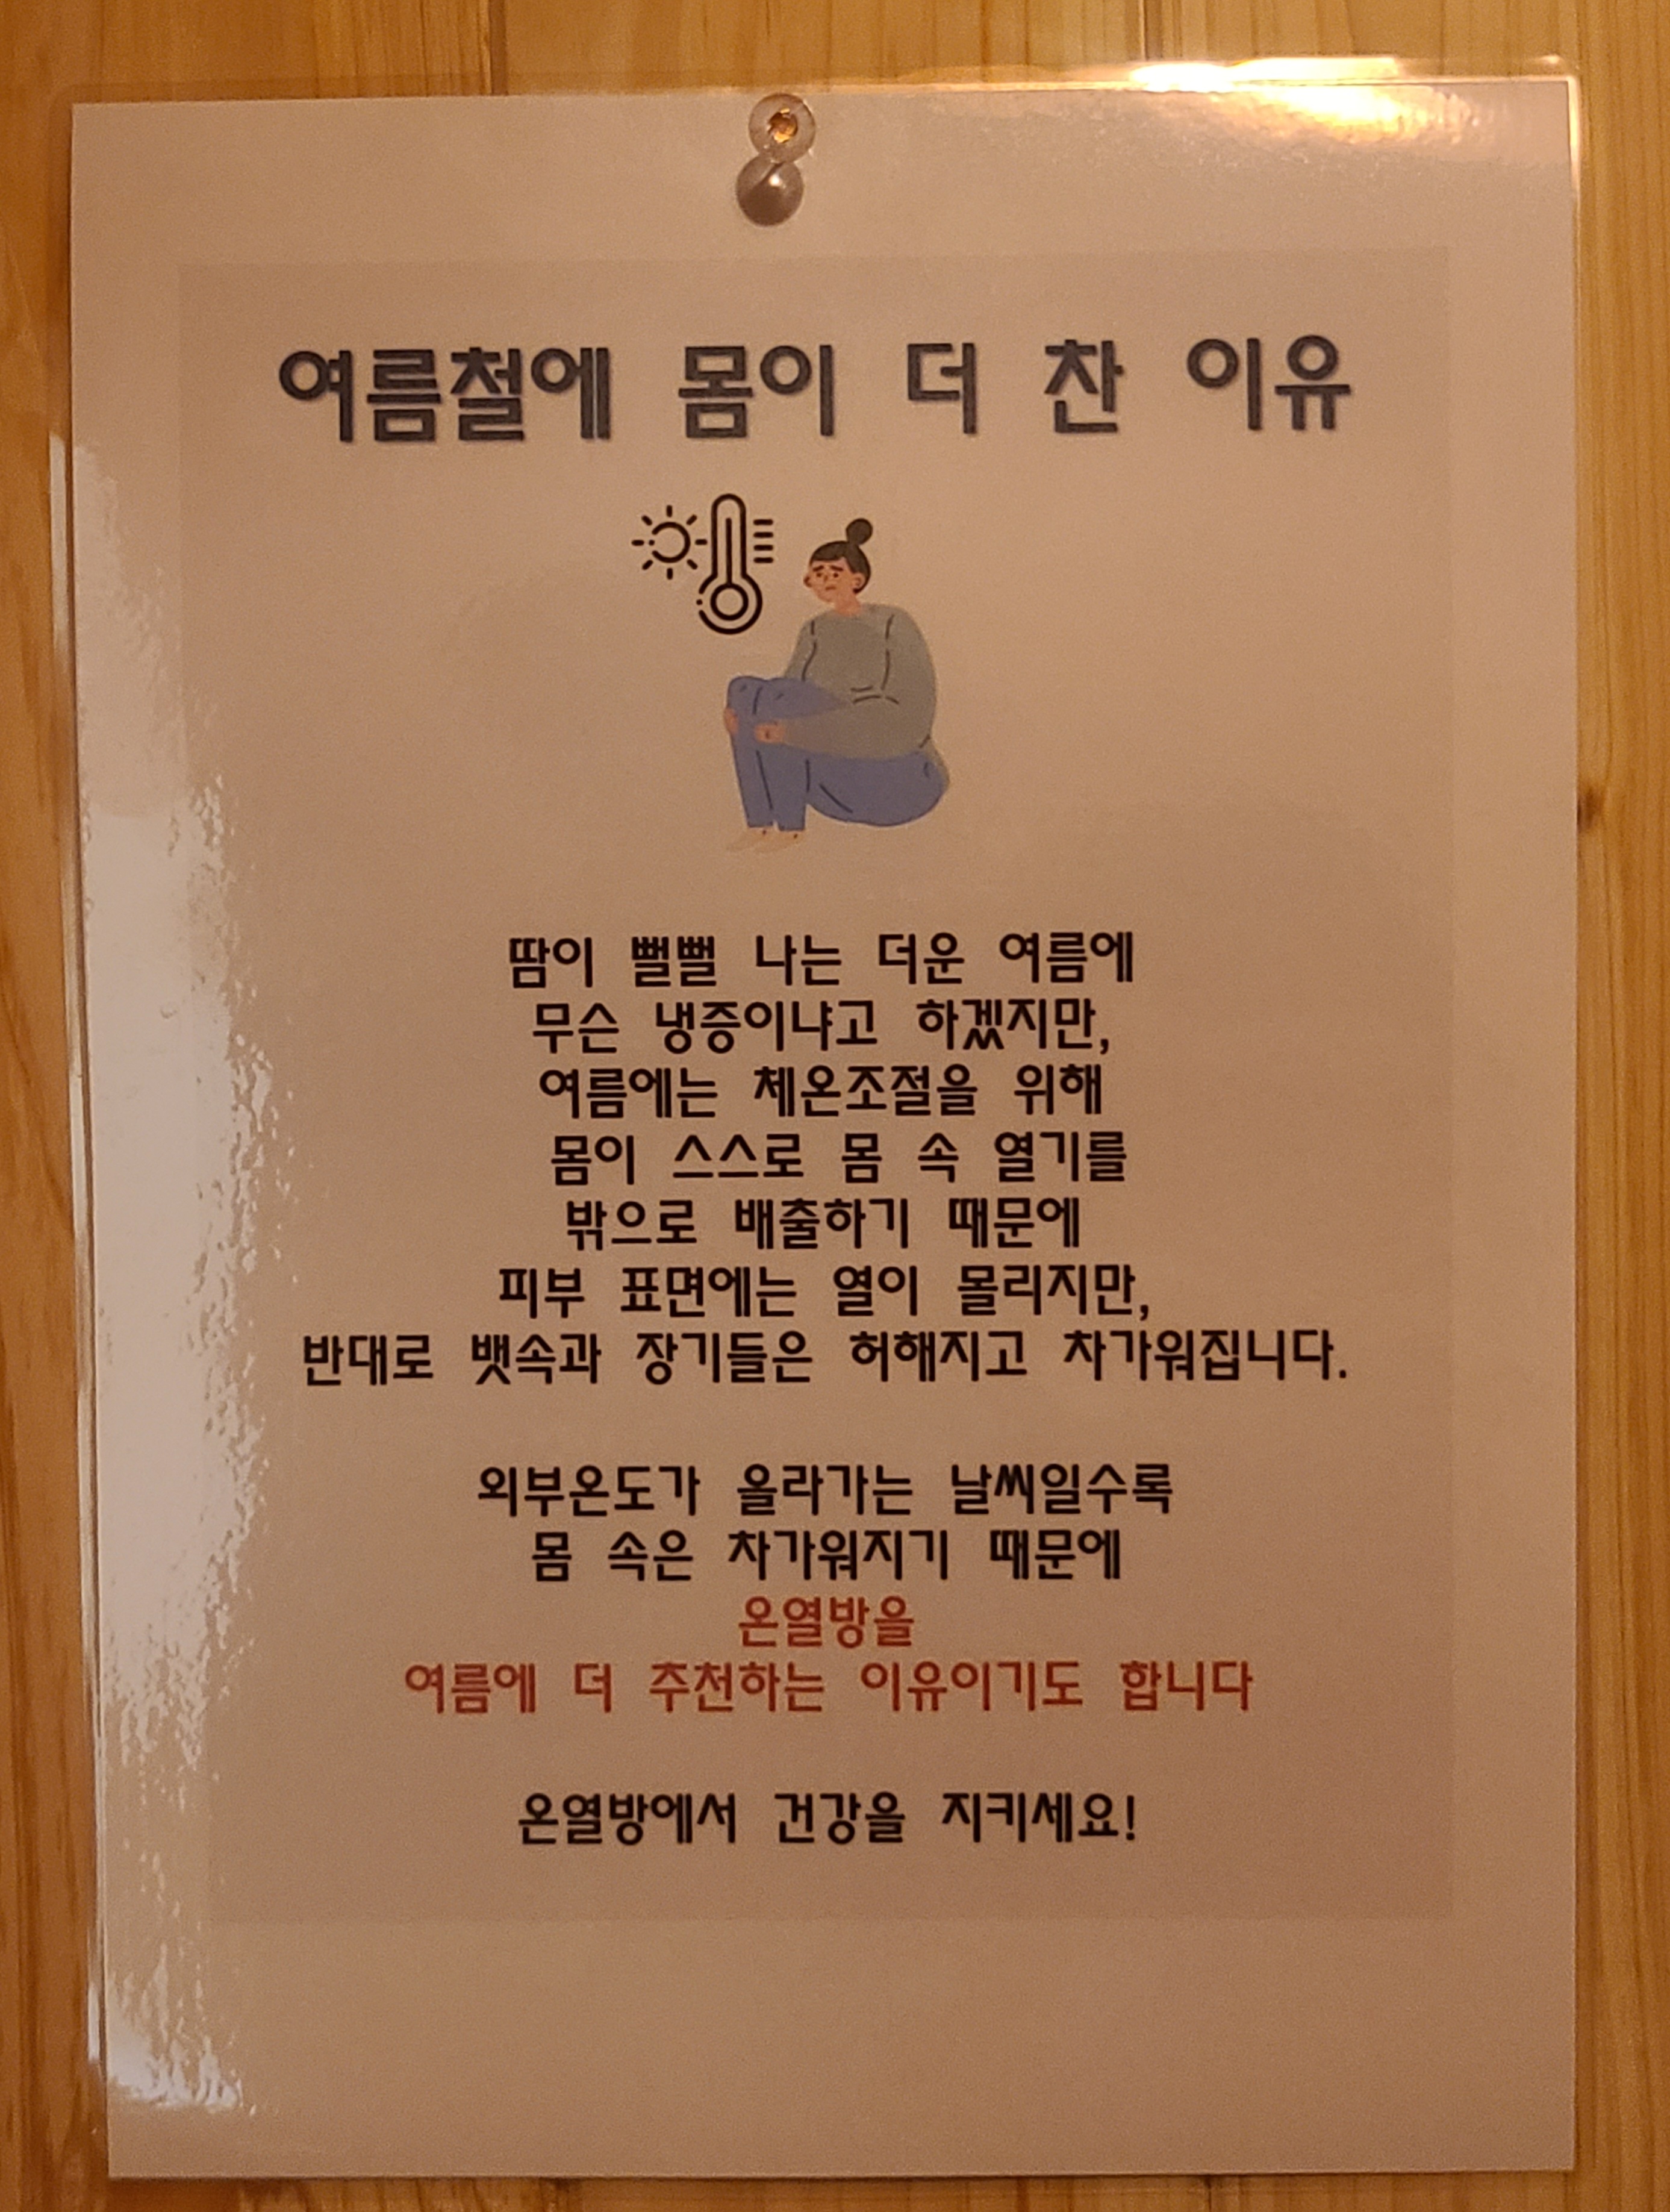 여름철에 몸이 더 찬 이유
땀이 뻘뻘 나는 더운 여름에
무슨 냉증이냐고 하겠지만,
여름에는 체온조절을 위해
몸이 스스로 몸 속 열기를
밖으로 배출하기 때문에
피부 표면에는 열이 몰리지만,
반대로 뱃속과 장기들은 허해지고 차가워집니다.
외부온도가 올라가는 날씨일수록
몸 속은 차가워지기 때문에
온열방을
여름에 더 추천하는 이유이기도 합니다
온열방에서 건강을 지키세요!